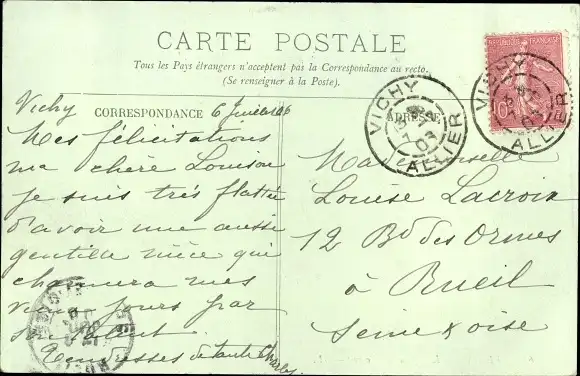 CARTE POSTALE
Tous les Pays étrangers n'acceptent pas la Correspondance au recto.
(Se renseigner à la Poste).
CORRESPONDANCE
Vichy 6 Juillet
Mes félicitations
ma chère Louison
je suis très flattée
d'avoir une aussi
gentille nièce qui
charmera mes
vieux jours par
Tendresses de tante Charles
ADRESSE
Mademoiselle
Louise Lacroix
12 Bd des Ormes
à Rueil
Seine & oise
REPUBLIQUE FRANÇAISE
10
VICHY
ALLIER
VICHY
ALLIER